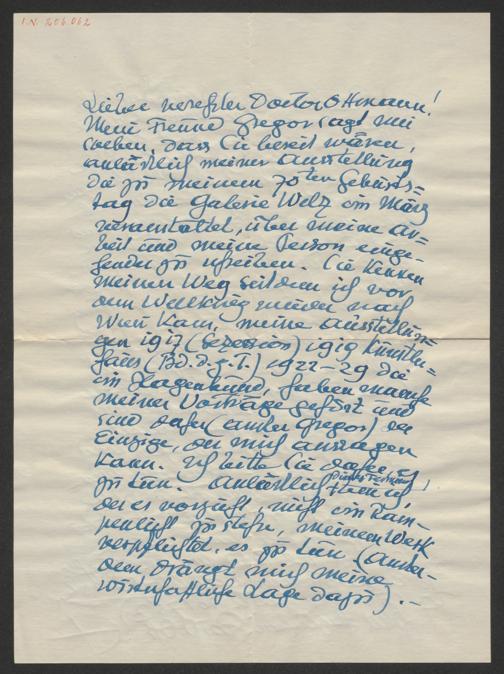 I.N. 206.062
Lieber verehrter Doctor Ottmann!
Mein Freund Gregor sagt mir
soeben, dass Sie bereit wären,
anlässlich meiner Ausstellung
die zu meinem 70ten Geburts-
tag die Galerie Welz im März
veranstaltet, über meine Ar-
beit und meine Person einge-
hender zu schreiben. Sie kennen
meinen Weg seitdem ich vor
dem Weltkrieg nach
Wien kam, meine Ausstellun-
gen 1917 (Secession) 1919 Künstler-
haus (Bd. d. g. T.) 1922-29 die
im Hagenbund, haben manche
meiner Vorträge gehört und
sind daher (außer Gregor) der
Einzige, der mich aussagen
kann. Ich bitte Sie daher es
zu tun. Anlässlich
der es vorzieht, nicht im Ram-
penlicht zu stehn, meinem Werk
verpflichtet, es zu tun (außer-
dem drängt mich meine
wirtschaftliche Lage dazu). –